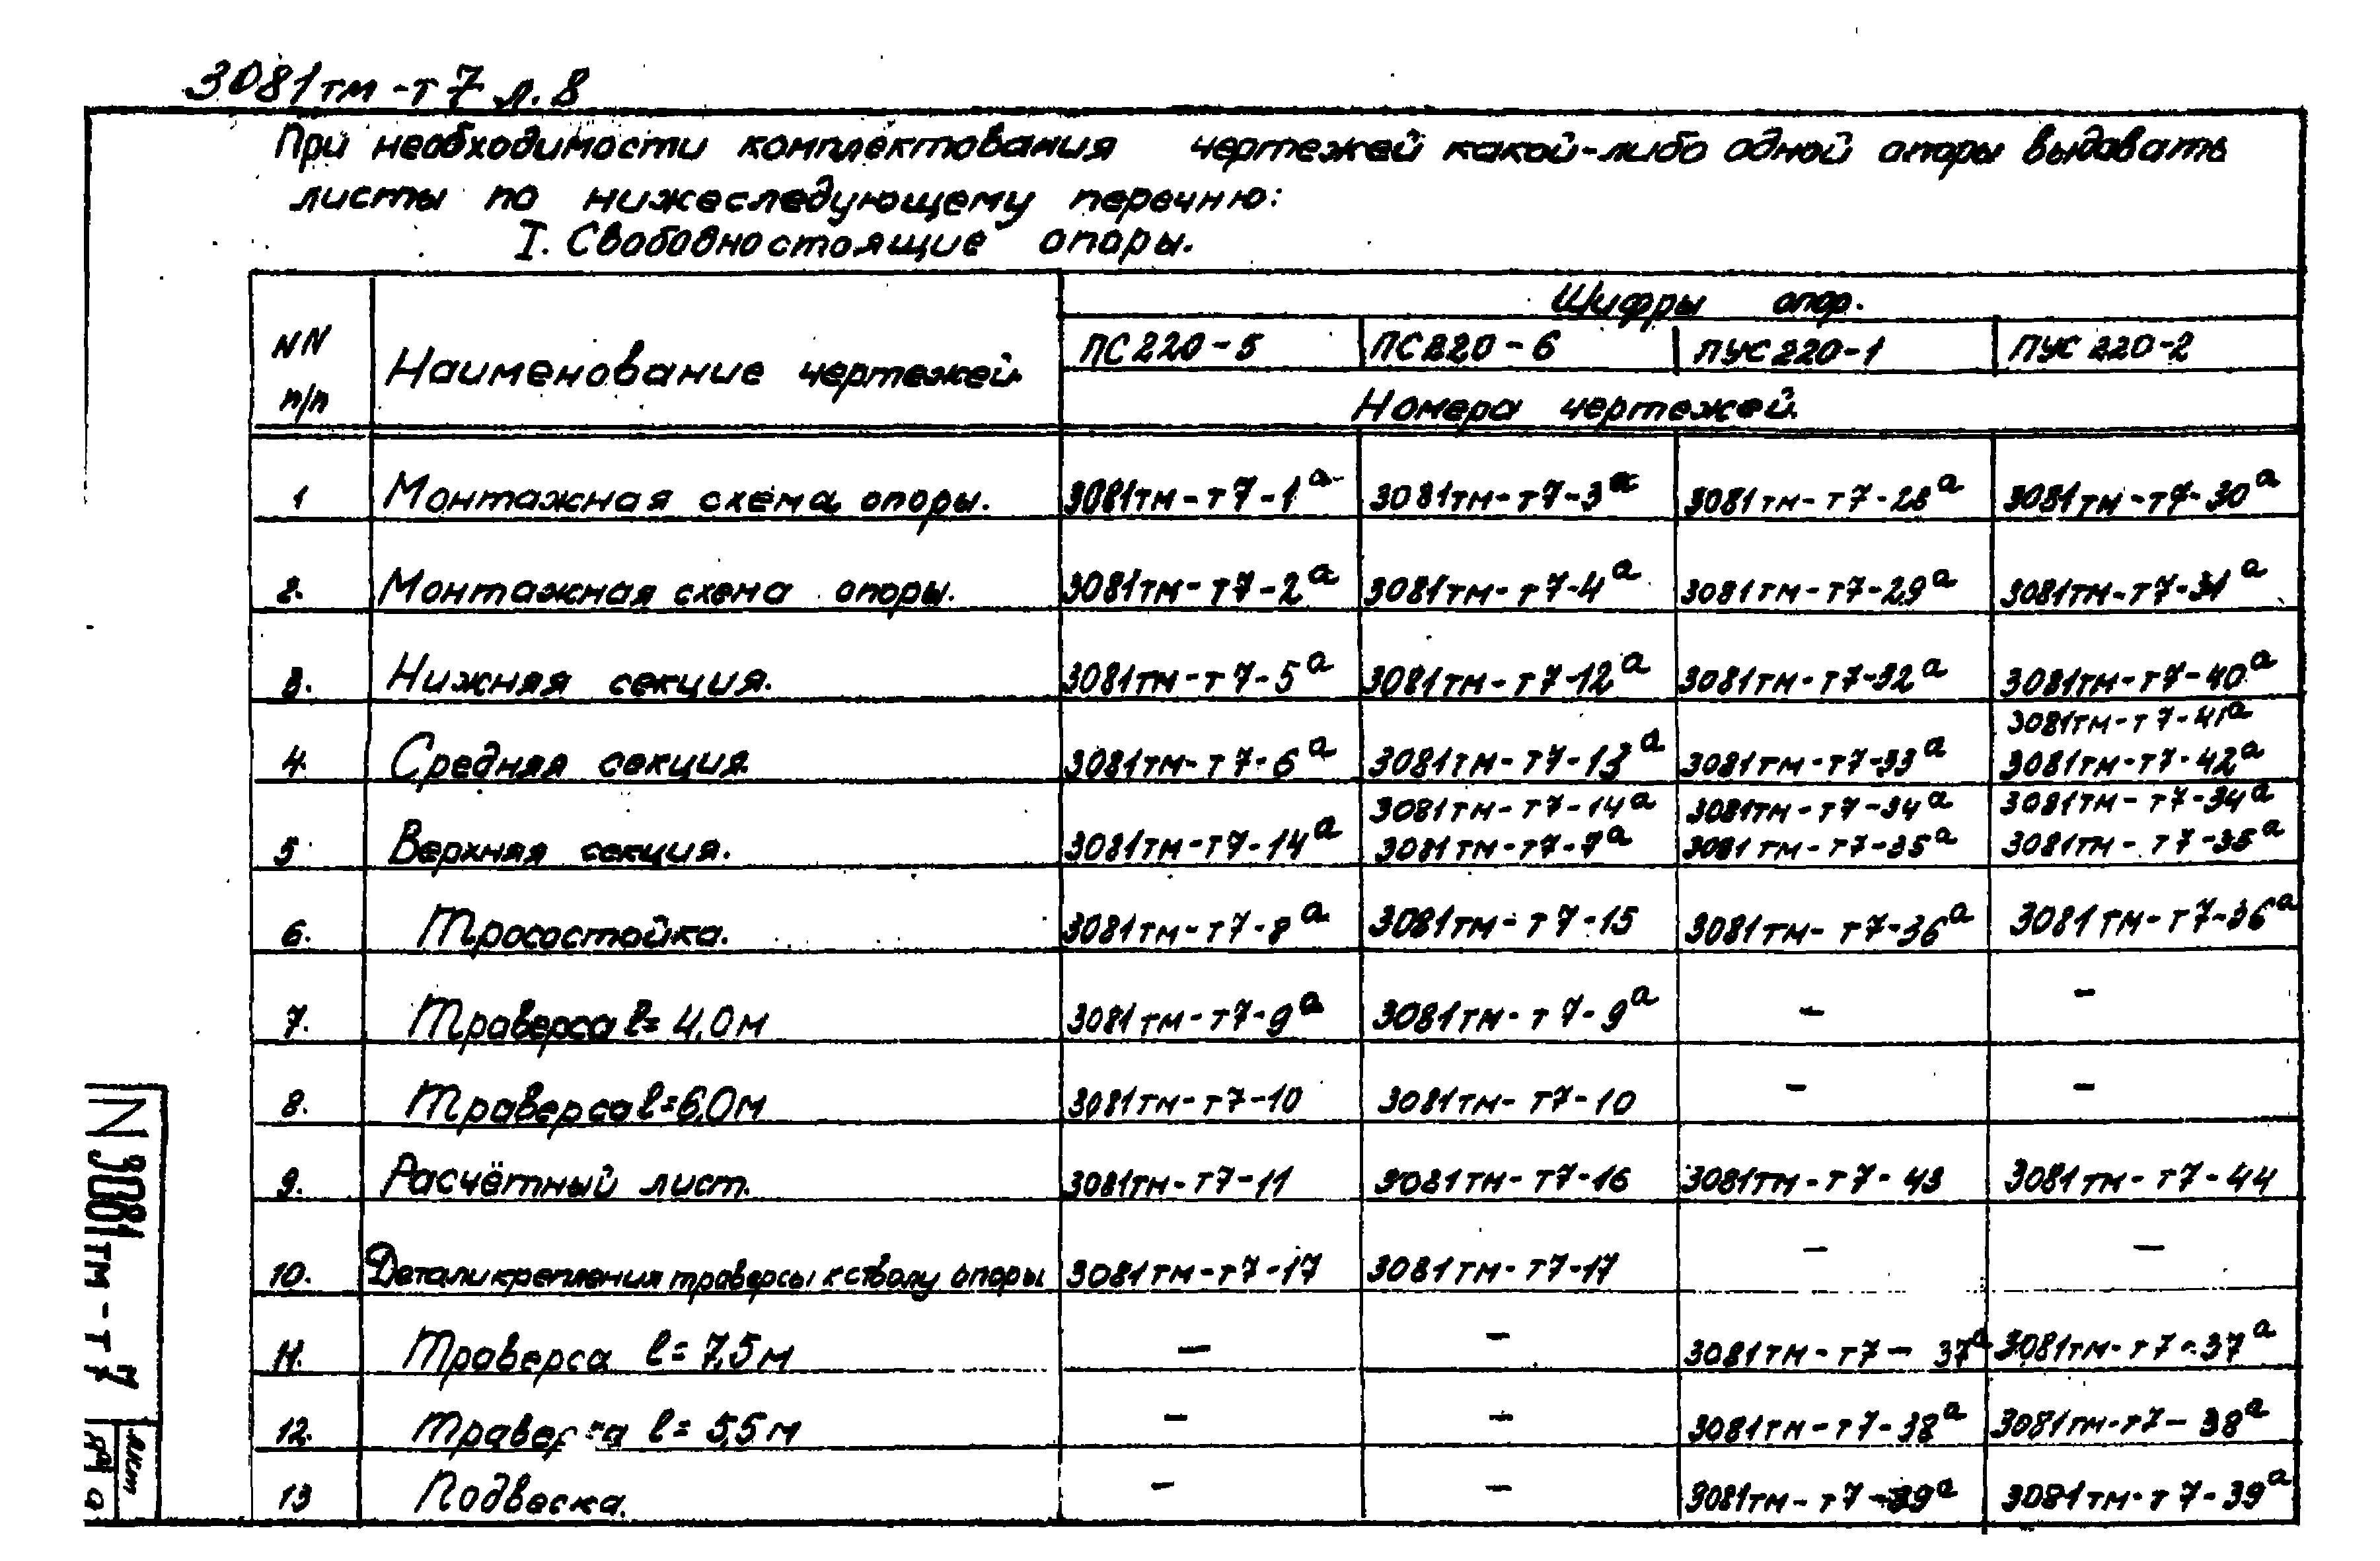 3081тм-т7 л.8
При необходимости комплектования чертежей какой-либо одной опоры выдавать
листы по нижеследующему перечню:
I. Свободностоящие опоры.
NN п/п Наименование чертежей Шифры опор.
ПС220-5 ПС220-6 ПУС220-1 ПУС220-2
Номера чертежей
1 Монтажная схема опоры. 3081тм-т7-1а 3081тм-т7-3а 3081тм-т7-28а 3081тм-т7-30а
2. Монтажная схема опоры. 3081тм-т7-2а 3081тм-т7-4а 3081тм-т7-29а 3081тм-т7-31а
3. Нижняя секция. 3081тм-т7-5а 3081тм-т7-12а 3081тм-т7-32а 3081тм-т7-40а
3081тм-т7-41а
4. Средняя секция 3081тм-т7-6а 3081тм-т7-13а 3081тм-т7-33а 3081тм-т7-42а
3081тм-т7-14а 3081тм-т7-34а 3081тм-т7-34а
5 Верхняя секция. 3081тм-т7-14а 3081тм-т7-7а 3081тм-т7-35а 3081тм-т7-35а
6. Тросостойка. 3081тм-т7-8а 3081тм-т7-15 3081тм-т7-36а 3081тм-т7-36а
7. Траверса l=4,0м 3081тм-т7-9а 3081тм-т7-9а - -
8. Траверса l=6,0м 3081тм-т7-10 3081тм-т7-10 - -
9. Расчётный лист. 3081тм-т7-11 3081тм-т7-16 3081тм-т7-43 3081тм-т7-44
10. Детали крепления траверсы к стволу опоры 3081тм-т7-17 3081тм-т7-17 - -
11. Траверса l=7,5м - - 3081тм-т7-37а 3081тм-т7-37а
12. Траверса l=5,5м - - 3081тм-т7-38а 3081тм-т7-38а
13 Подвеска. - - 3081тм-т7-39а 3081тм-т7-39а
N3081тм-т7
Лист